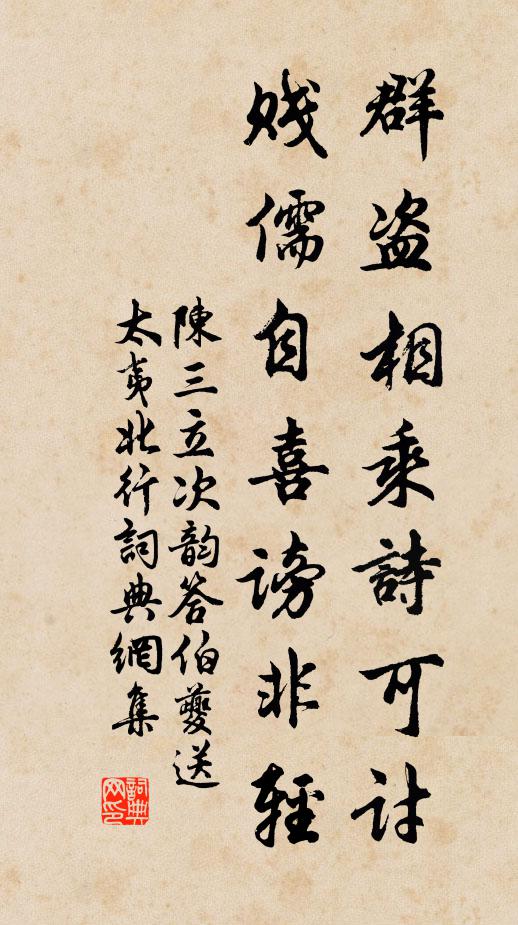 群盗相乘詩可討
賤儒自喜謗非輕
陳三立次韵答伯夔送
太夷北行詞典網集
詞典网印